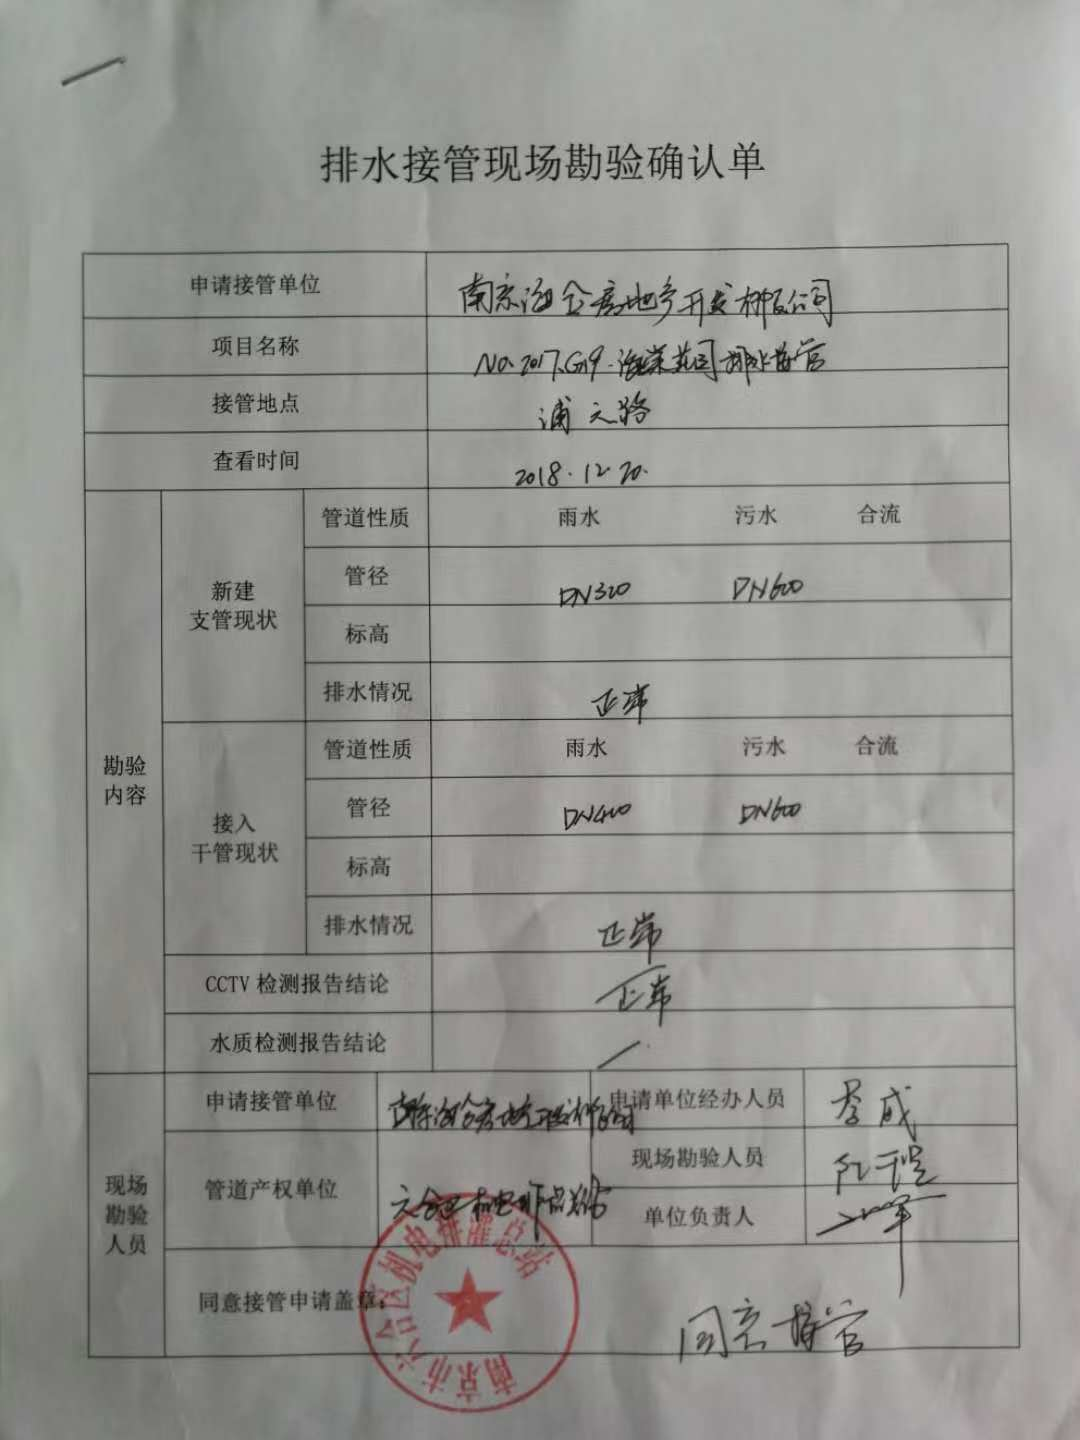 排水接管现场勘验确认单
申请接管单位 南京 房地产开发有限公司
项目名称 No.2017.G19. 花园排水接管
接管地点 浦六路
查看时间 2018.12.20.
勘验内容
新建支管现状
管道性质 雨水 污水 合流
管径 DN300 DN600
标高
排水情况 正常
接入干管现状
管道性质 雨水 污水 合流
管径 DN400 DN600
标高
排水情况 正常
CCTV检测报告结论 正常
水质检测报告结论
现场勘验人员
申请接管单位 南京 房地产开发有限公司 申请单位经办人员 李成
管道产权单位 六合区机电排灌总站 现场勘验人员
单位负责人
同意接管申请盖章: 同意接管
南京市六合区机电排灌总站